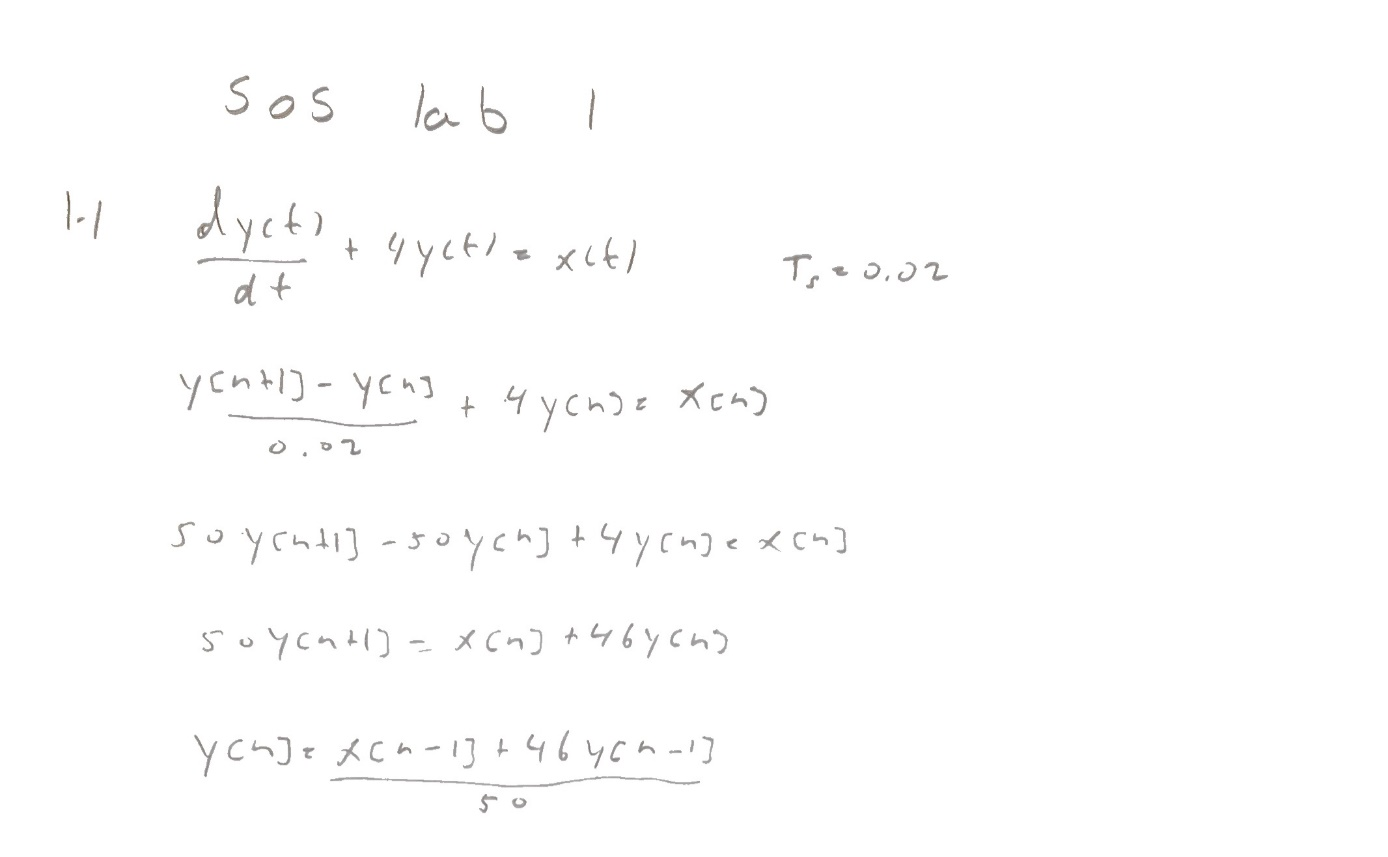 SOS lab 1
1.1 dy(t)/dt + 4y(t) = x(t) Ts = 0.02
y[n+1] - y[n] / 0.02 + 4y[n] = x[n]
50y[n+1] - 50y[n] + 4y[n] = x[n]
50y[n+1] = x[n] + 46y[n]
y[n] = x[n-1] + 46y[n-1] / 50